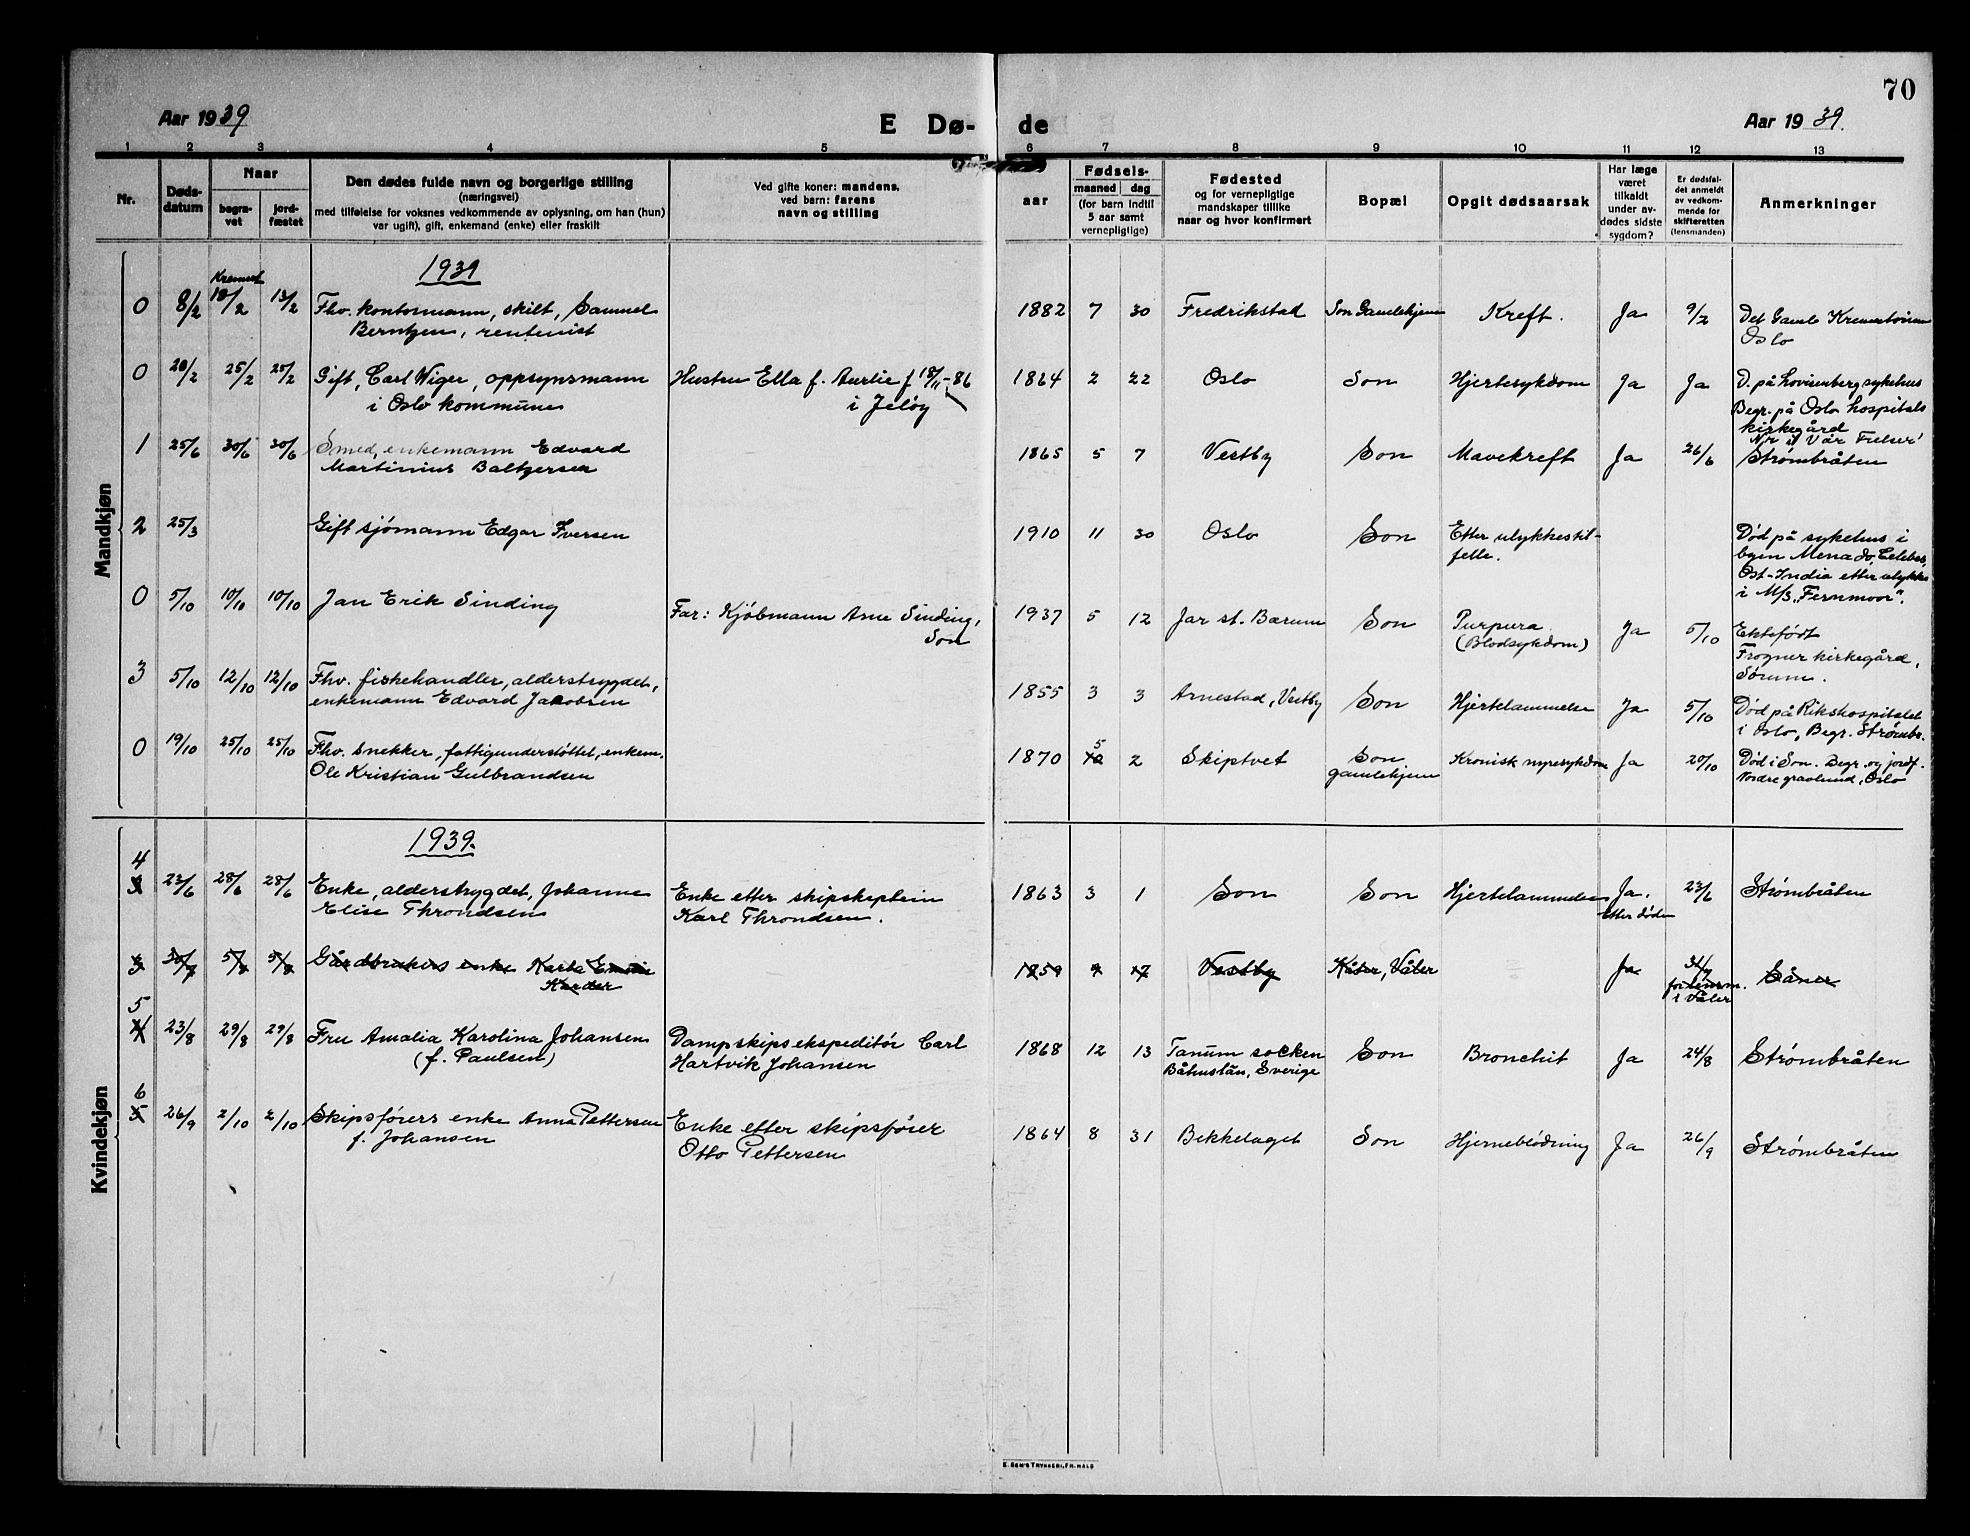 70
Aar 1939
E Dø-
de
Aar 1939.
1 2 3 4 5 6 7 8 9 10 11 12 13
Nr.
Døds-
datum
Naar
begra-
vet
jord-
fæstet
Den dødes fulde navn og borgerlige stilling
(næringsvei)
med tilføielse for voksnes vedkommende av oplysning, om han (hun)
var ugift), gift, enkemand (enke) eller fraskilt
Ved gifte koner: mandens,
ved barn: farens
navn og stilling
aar
Fødsels-
maaned dag
(for barn indtil
5 aar samt
vernepligtige)
Fødested
og for vernepligtige
mandskaper tillike
naar og hvor konfirmert
Bopæl
Opgit dødsaarsak
Har læge
været
tilkaldt
under av-
dødes sidste
sygdom?
Er dødsfal-
det anmeldt
av vedkom-
mende for
skifteretten
(lensmanden)
Anmerkninger
Mandkjøn
1939
Kremert
0 8/2 10/2 13/2 Fhv. kontormann, skilt, Samuel 1882 7 30 Fredrikstad Son Gamlehjem Kreft. Ja 9/2 Det Gamle Krematorium
Berntzen, rentenist Oslo
0 20/2 25/2 25/2 Gift, Carl Wiger, oppsynsmann Hustru Ella f. Aurlie f 18/11-86 1864 2 22 Oslo Son Hjertesykdom Ja Ja D. på Lovisenberg sykehus
i Oslo kommune i Jeløy Begr. på Oslo hospitals
kirkegård
Nr i Vår Frelser'
1 25/6 30/6 30/6 Smed, enkemann Edvard 1865 5 7 Vestby Son Mavekreft Ja 26/6 Strømbråten
Martinius Baltzersen
2 25/3 Gift sjömann Edgar Iversen 1910 11 30 Oslo Son Etter ulykkestil- Död på sykehus i
felle. byen Menado, Celebes,
Ost-India etter ulykke
i M/S "Fernmoor".
0 5/10 10/10 10/10 Jan Erik Sinding Far: Kjöbmann Arne Sinding, 1937 5 12 Jar st. Bærum Son Purpura Ja 5/10 Ektefödt
Son (Blodsykdom) Frogner kirkegård,
Sørum.
3 5/10 12/10 12/10 Fhv. fiskehandler, alderstrygdet, 1855 3 3 Arnestad, Vestby Son Hjertelammelse Ja 5/10 Död på Rikshospitalet
enkemann Edvard Jakobsen i Oslo, Begr. Strömbr.
0 19/10 25/10 25/10 Fhv. snekker, fattigunderstøttet, enkem. 1870 5 10 2 Skiptvet Son Kronisk nyresykdom Ja 20/10 Död i Son. Begr. og jordf.
Ole Kristian Gulbrandsen gamlehjem Nordre gravlund, Oslo
Kvindekjøn
1939.
4
3 23/6 28/6 28/6 Enke, alderstrygdet, Johanne Enke etter skipskaptein 1863 3 1 Son Son Hjertelammelse Ja. 23/6 Strømbråten
Elise Throndsen Karl Throndsen. etter döden
3 30/7 5/8 5/8 Gårdbrukers enke Karla Emilie 1859 9 17 Vestby Kåter, Våler Ja 31/7 Såner
Karder for lensm.
i Våler
5
4 23/8 29/8 29/8 Fru Amalia Karolina Johansen Dampskipsekspeditör Carl 1868 12 13 Tanum socken Son Bronchit Ja 24/8 Strømbråten
(f. Paulsen) Hartvik Johansen Båhuslän, Sverige
6
5 26/9 2/10 2/10 Skipsförers enke Anna Pettersen Enke etter skipsförer 1864 8 31 Bekkelaget Son Hjerneblödning Ja 26/9 Strømbråten
f. Johansen Otto Pettersen
E. SEM'S TRYKKERI, FR.HALD